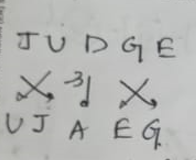 J U D G E
-3
U J A E G